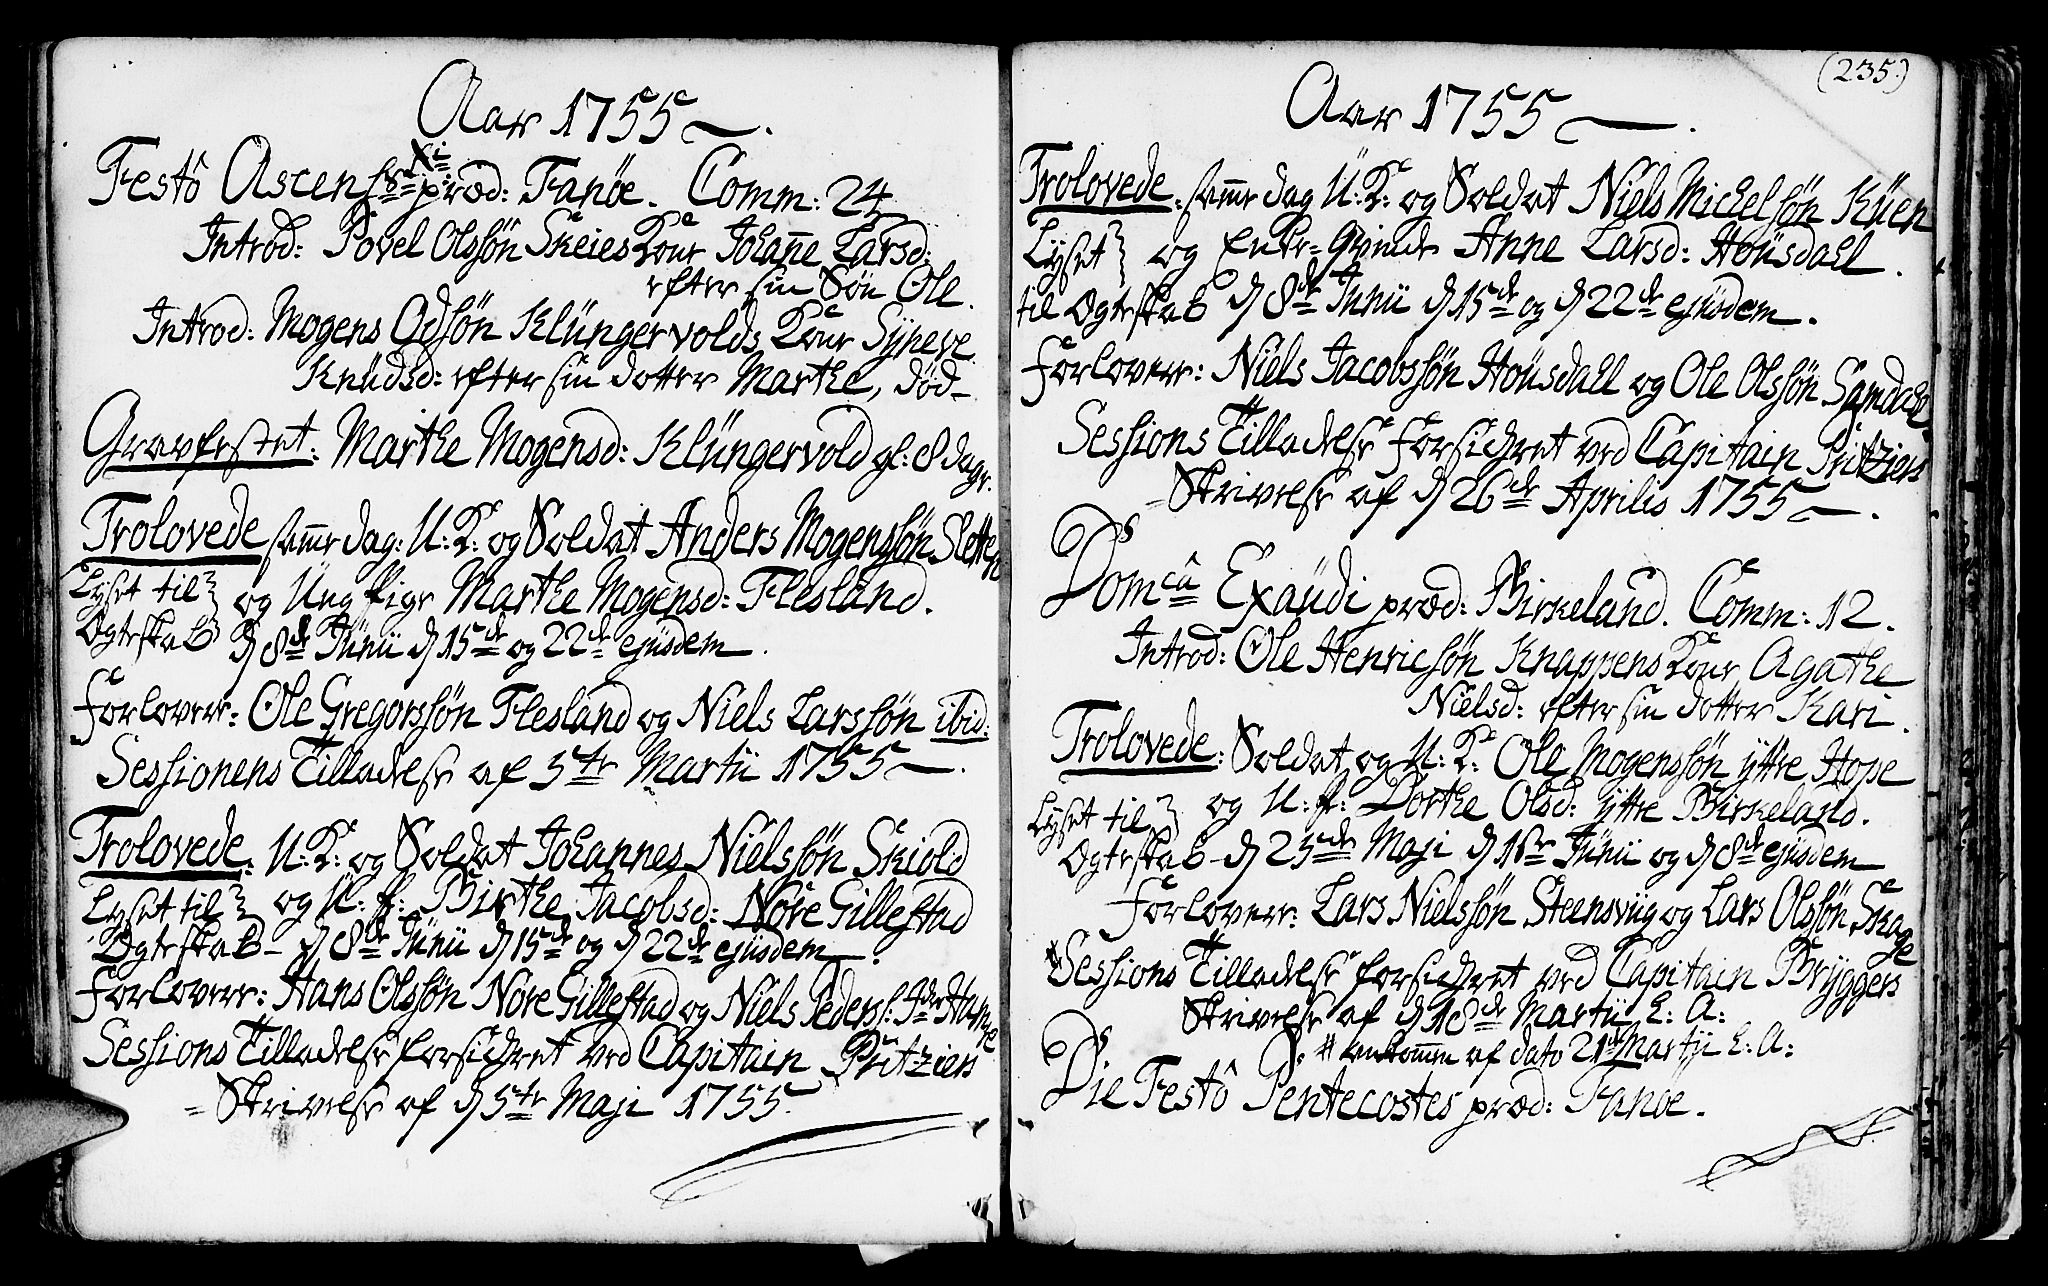 Aar 1755.
Festô Ascens: Xi præd: Fanöe. Comm: 24
Introd: Povel Olssön Skeies Kone Johañe Larsd:
efter sin Sön Ole.
Introd: Mogens Odsön Klüngervolds Kone Syneve
Knüdsd: efter sin dotter Marthe, død
Gravfestet: Marthe Mogensd: Klüngervold gl: 8 dage.
Trolovede samme dag: U: K: og Soldat Anders Mogenssön Sletten
Lyset til } og Ung Pige Marthe Mogensd: Flesland.
Ægteskab d 8de Junii d 15de og 22de ejusdem.
Forlovere: Ole Gregorssön Flesland og Niels Larssön ibid:
Sessionens Tilladelse af 5te Martii 1755.
Trolovede: U: K: og Soldat Johannes Nielssön Skiold
Lyset til } og U: P: Birthe Jacobsd: Nore Gillestad
Ægteskab d 8de Junii d 15de og d 22de ejusdem.
Forlovere: Hans Olssön Nore Gillestad og Niels Peders: Hamre
Sessions Tilladelse forsichret ved Capitain Pritziers
Skrivelse af d 5te Maji 1755.
(235)
Aar 1755.
Trolovede: samme dag U: K: og Soldat Niels Michelsön Küen
Lyset } og Enke-Qvinde Anne Larsd: Housdahl.
til Ægteskab d 8de Junii d 15de og d 22de ejusdem.
Forlovere: Niels Jacobssön Housdall og Ole Olssön Samdahl.
Sessions Tilladelse forsichret ved Capitain Pritziers
Skrivelse af d 26de Aprilis 1755.
Domcâ Exaudi præd: Birkeland. Comm: 12.
Introd: Ole Henricsön Knappens Kone Agathe
Nielsd: efter sin dotter Kari.
Trolovede: Soldat og U: K: Ole Mogenssön ytre Hope
Lyset til } og U: P: Dorthe Olsd: ytre Birkeland.
Ægteskab d 25de Maji d 1ste Junii og d 8de ejusdem
Forlovere: Lars Nielssön Steensviig og Lars Olssön Skage
Sessions Tilladelse forsichret ved Capitain Bryggers
Skrivelse af d 18de Martii h: A:
# ankomme af dato 21de Martii h: A:
Die Festô Pentecostes præd: Fanöe.